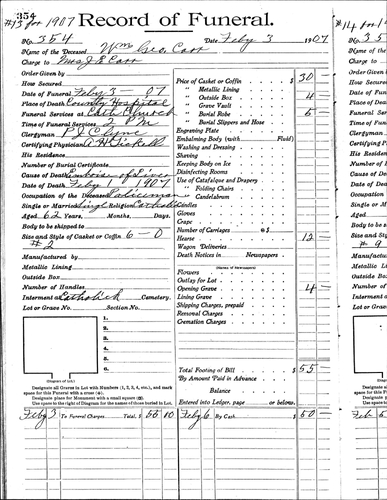 354
#13 for 1907 Record of Funeral.
No. 354 Date Feby 3 1907
Name of the Deceased Wm Geo. Carr
Charge to Mrs J. E. Carr
Order Given by
How Secured
Date of Funeral Feby 3 - 07
Place of Death County Hospital
Funeral Services at Cath Church
Time of Funeral Services 2 PM
Clergyman P J Clyne
Certifying Physician
His Residence
Number of Burial Certificate
Cause of Death of Liver
Date of Death Feby 1 1907
Occupation of the Deceased Policeman
Single or Married Single Religion Catholic
Aged 62 Years, Months, Days.
Body to be shipped to
Size and Style of Casket or Coffin 6-0
#2
Manufactured by
Metallic Lining
Outside Box
Number of Handles
Interment at Catholick Cemetery.
Lot or Grave No. Section No.
1.
2.
3.
4.
5.
6.
(Diagram of Lot.)
Designate all Graves in Lot with Numbers (1, 2, 3, 4, etc.), and mark
space for this Funeral with a cross
Designate place for Monument with a small square
Use space to the right of Diagram for the names of those buried in Lot.
Price of Casket or Coffin $ 30 —
" Metallic Lining
" Outside Box 4 —
" Grave Vault
" Burial Robe 5 —
" Burial Slippers and Hose
Engraving Plate
Embalming Body (with Fluid)
Washing and Dressing
Shaving
Keeping Body on Ice
Disinfecting Rooms
Use of Catafalque and Drapery
" Folding Chairs
" Candelabrum
Candles
Gloves
Crape
Number of Carriages @ $
Hearse 12 —
Wagon Deliveries
Death Notices in Newspapers
(Names of Newspapers)
Flowers
Outlay for Lot
Opening Grave 4 —
Lining Grave
Shipping Charges, prepaid
Removal Charges
Cremation Charges
Total Footing of Bill $ 55 —
By Amount Paid in Advance
Balance
Entered into Ledger, page or below.
Feby 3 To Funeral Charges Total, $ 55 00 Feby 6 By Cash $ 50 —
#14 for 1
No. 35
Name of
Charge to
Order Gi
How Sec
Date of F
Place of
Funeral
Time of
Clergym
Certifyin
His Re
Number
Cause of
Date of
Occupati
Single or
Aged
Body to
Size and
# 9
Manufact
Metallic
Outside
Number
Intermen
Lot or Gr
Feb 5